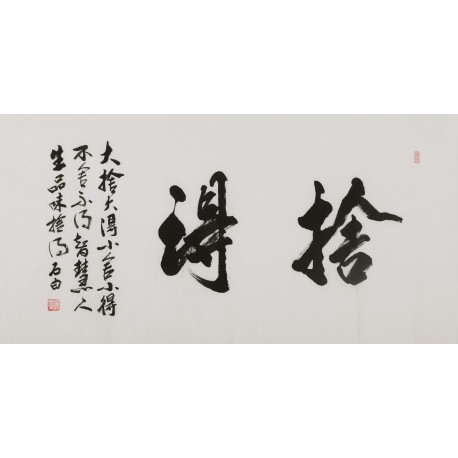 捨得
大捨大得小舍小得
不舍不得智慧人
生品味捨得石白